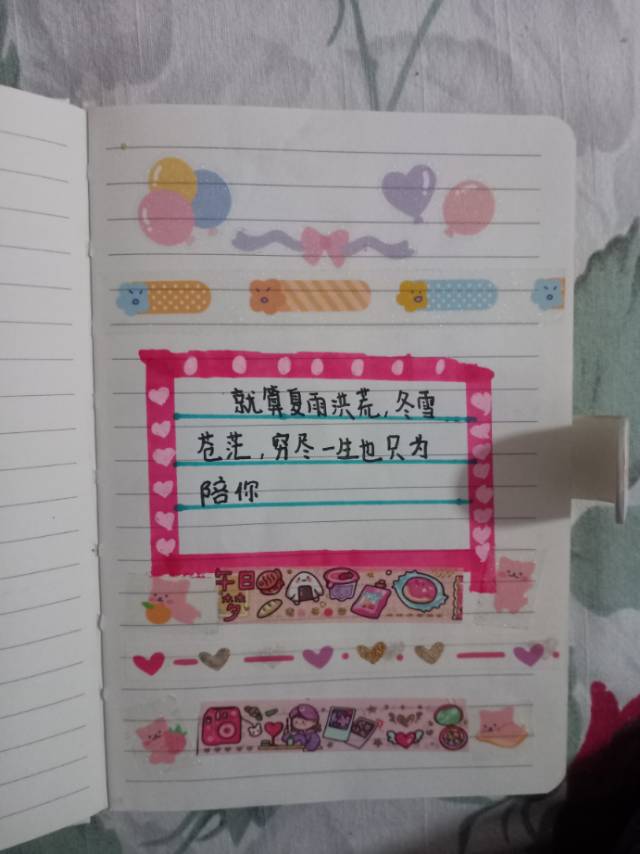 就算夏雨洪荒，冬雪
苍茫，穷尽一生也只为
陪你
午日
梦